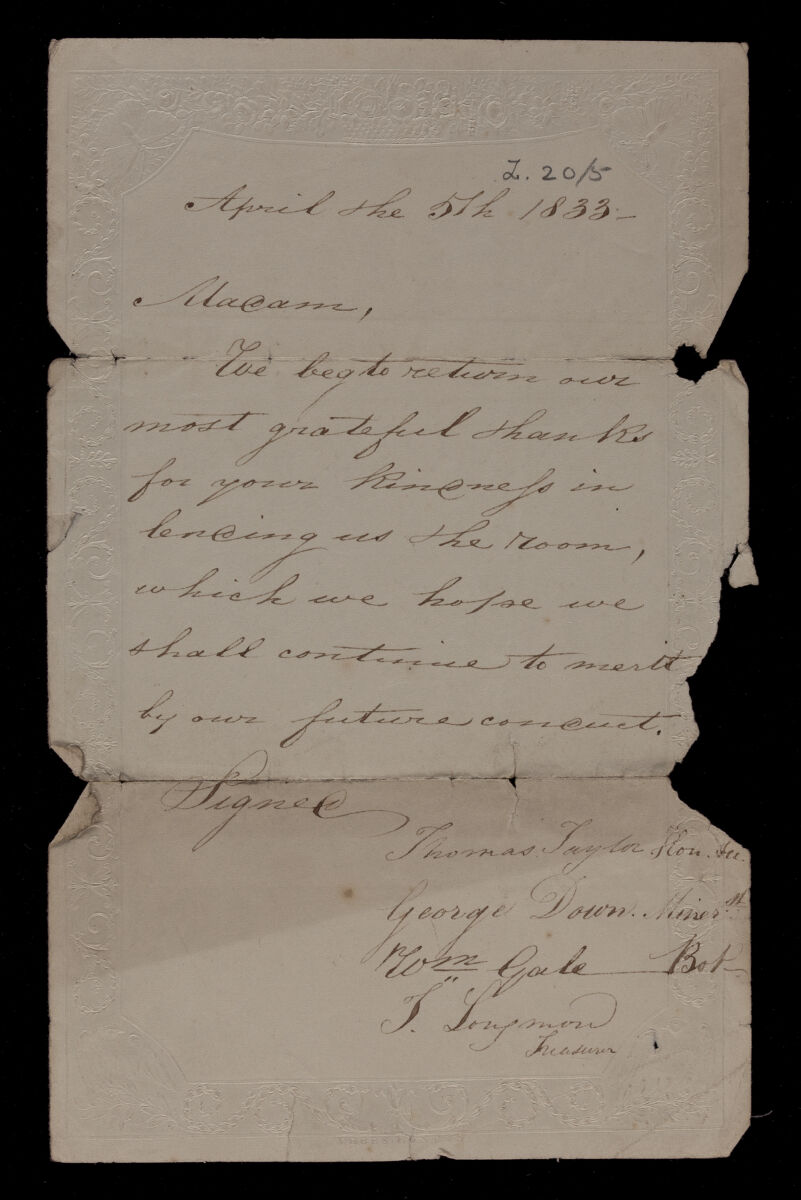 Z. 20/5
April the 5th 1833 -
Madam,
We beg to return our
most grateful thanks
for your kindness in
lending us the room,
which we hope we
shall continue to merit
by our future conduct.
Signed
Thomas Taylor Hon. Sec.
George Down. Miner.st
Wm Gale Bot
T. Longmore
Treasurer